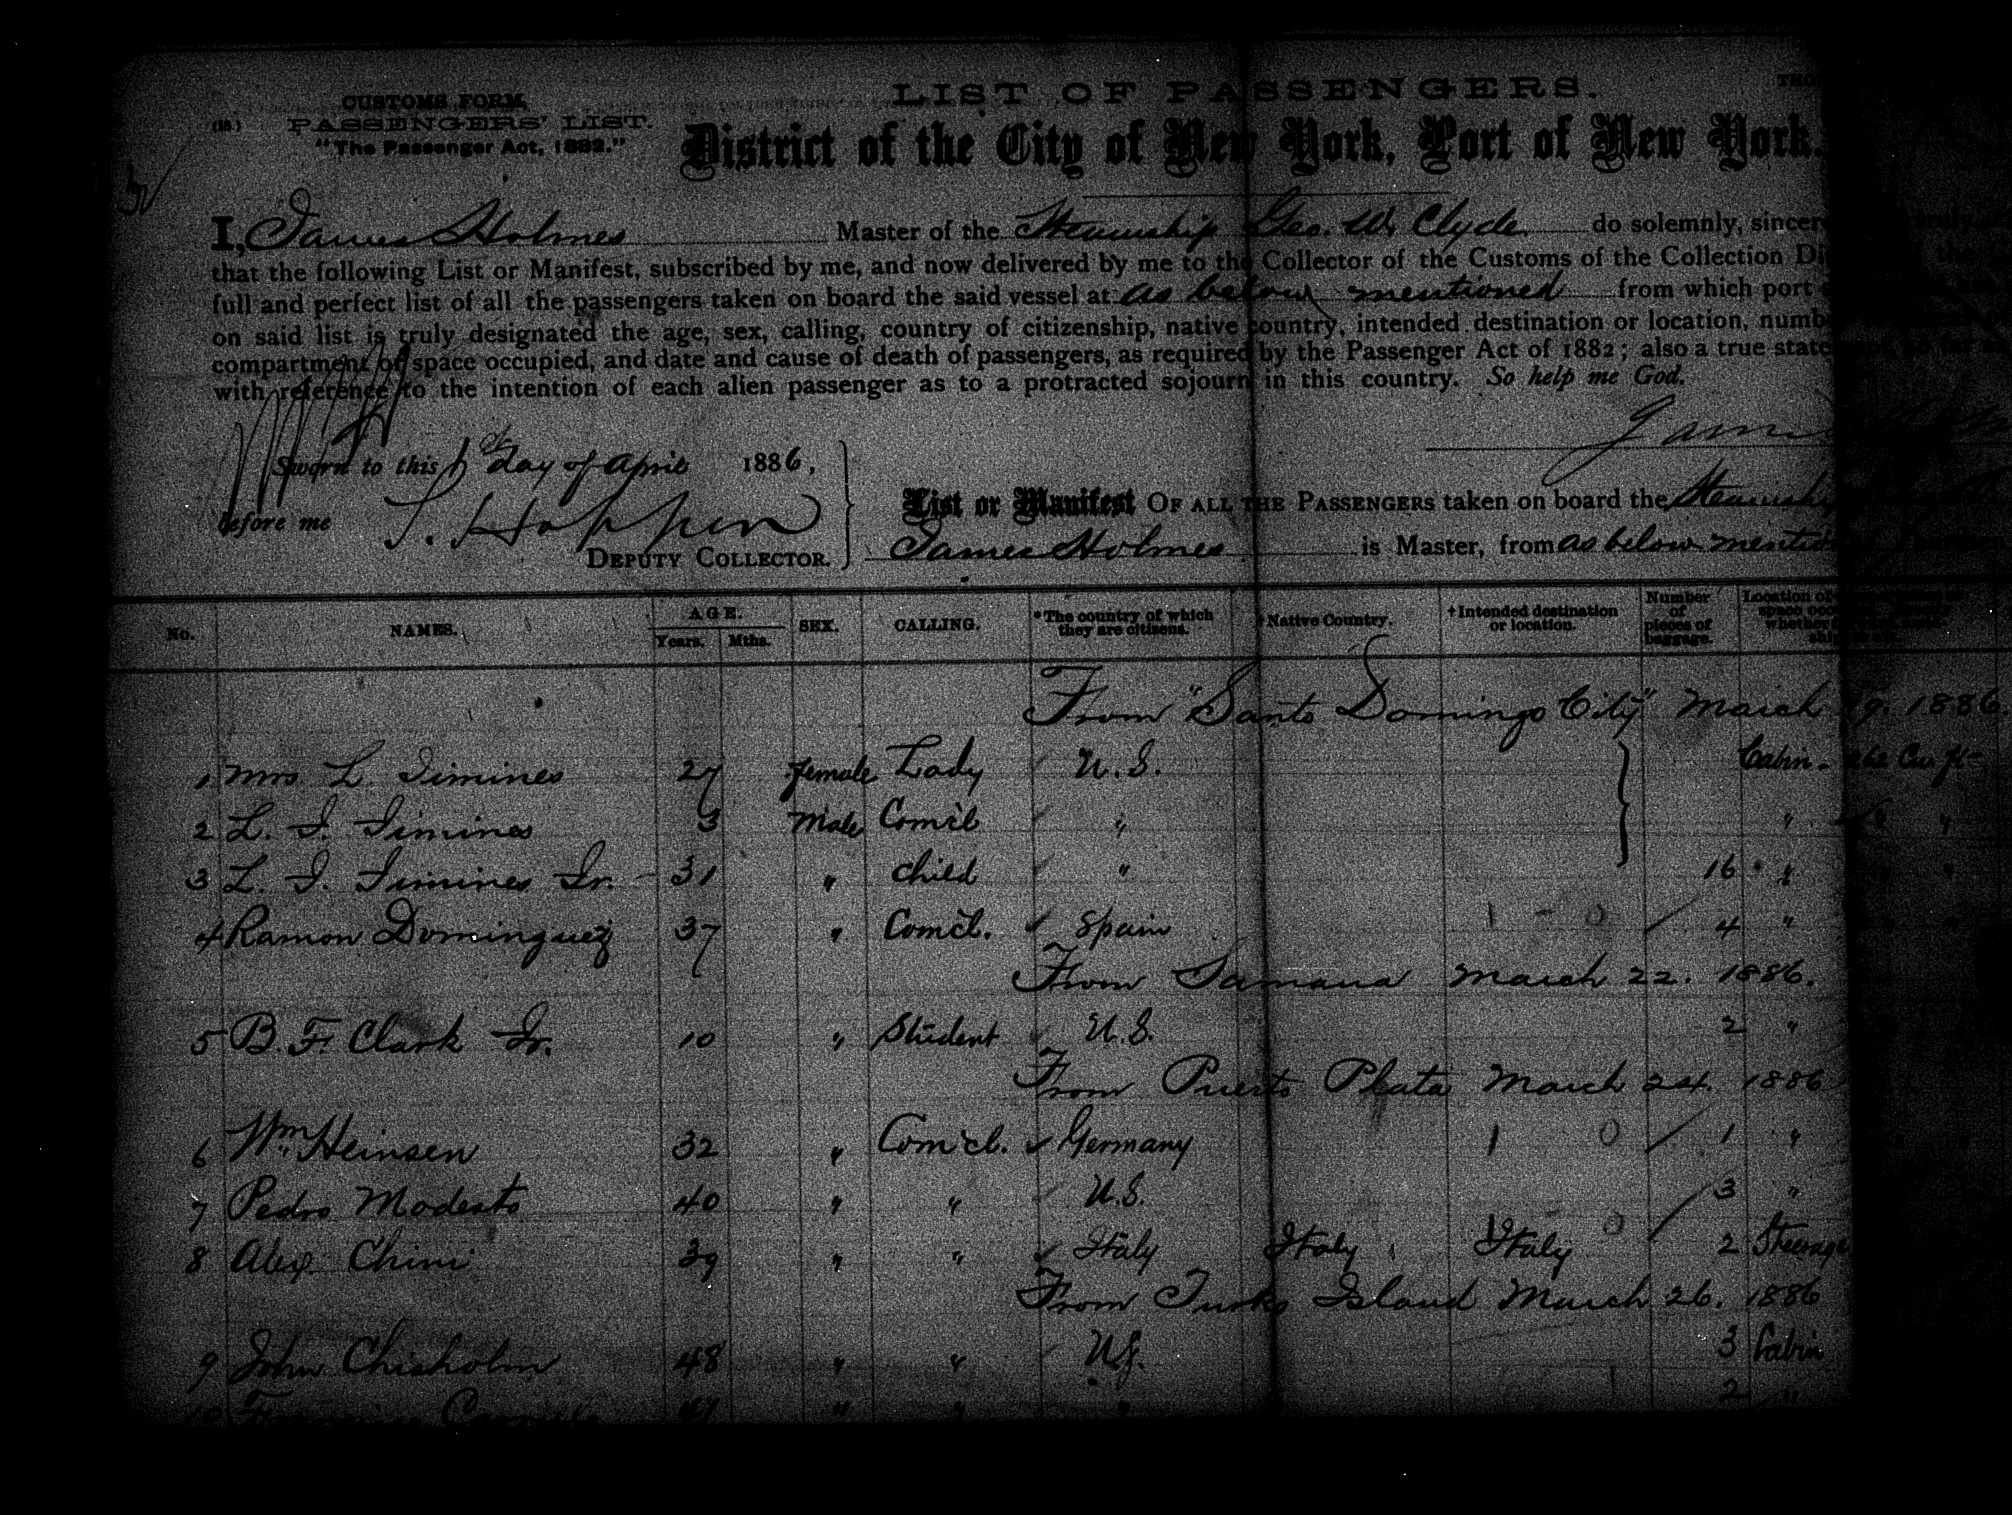 LIST OF PASSENGERS.
CUSTOMS FORM,
PASSENGERS' LIST.
"The Passenger Act, 1882."
District of the City of New York, Port of New York.
I, James Holmes Master of the Steamship Geo. W. Clyde do solemnly,
that the following List or Manifest, subscribed by me, and now delivered by me to the Collector of the Customs of the Collection
full and perfect list of all the passengers taken on board the said vessel at as below mentioned from which port
on said list is truly designated the age, sex, calling, country of citizenship, native country, intended destination or location,
compartment or space occupied, and date and cause of death of passengers, as required by the Passenger Act of 1882; also a true
with reference to the intention of each alien passenger as to a protracted sojourn in this country. So help me God.
James
Sworn to this day of April 1886,
before me
DEPUTY COLLECTOR.
List or Manifest OF ALL THE PASSENGERS taken on board the Steamship
James Holmes is Master, from as below
No. NAMES. AGE. Years. Mths. SEX. CALLING. *The country of which they are citizens. †Native Country. †Intended destination or location. Number of pieces of baggage. Location of
From "Santo Domingo City" March 1886
1 Mrs L. 27 female Lady U.S. Cabin Cu. ft
2 L. 3 Male Com'cl " "
3 L. Jr. 31 " child " 16 "
4 Ramon Dominguez 37 " Com'cl. Spain 1 - 0 4 "
From Samana March 22. 1886.
5 B. F. Clark Jr. 10 " Student U.S. 2 "
From Puerto Plata March 24. 1886
6 Wm. Heinsen 32 " Com'cl. Germany 1 0 1 "
7 Pedro Modesto 40 " " U.S. 3 "
8 Alex Chini 39 " " Italy Italy Italy 0 2 Steerage
From Turks Island March 26. 1886
9 John Chisholm 48 " " U.S. 3 Cabin
" " " 2 "